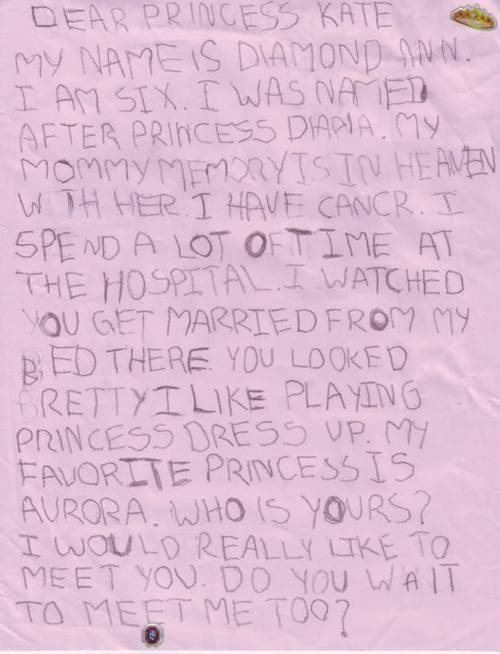 DEAR PRINCESS KATE
MY NAME IS DIAMOND ANN.
I AM SIX. I WAS NAMED
AFTER PRINCESS DIANA. MY
MOMMY MEMORY IS IN HEAVEN
WITH HER. I HAVE CANCR. I
SPEND A LOT OF TIME AT
THE HOSPITAL. I WATCHED
YOU GET MARRIED FROM MY
BED THERE. YOU LOOKED
PRETTY I LIKE PLAYING
PRINCESS DRESS UP. MY
FAVORITE PRINCESS IS
AURORA. WHO IS YOURS?
I WOULD REALLY LIKE TO
MEET YOU. DO YOU WAIT
TO MEET ME TOO?